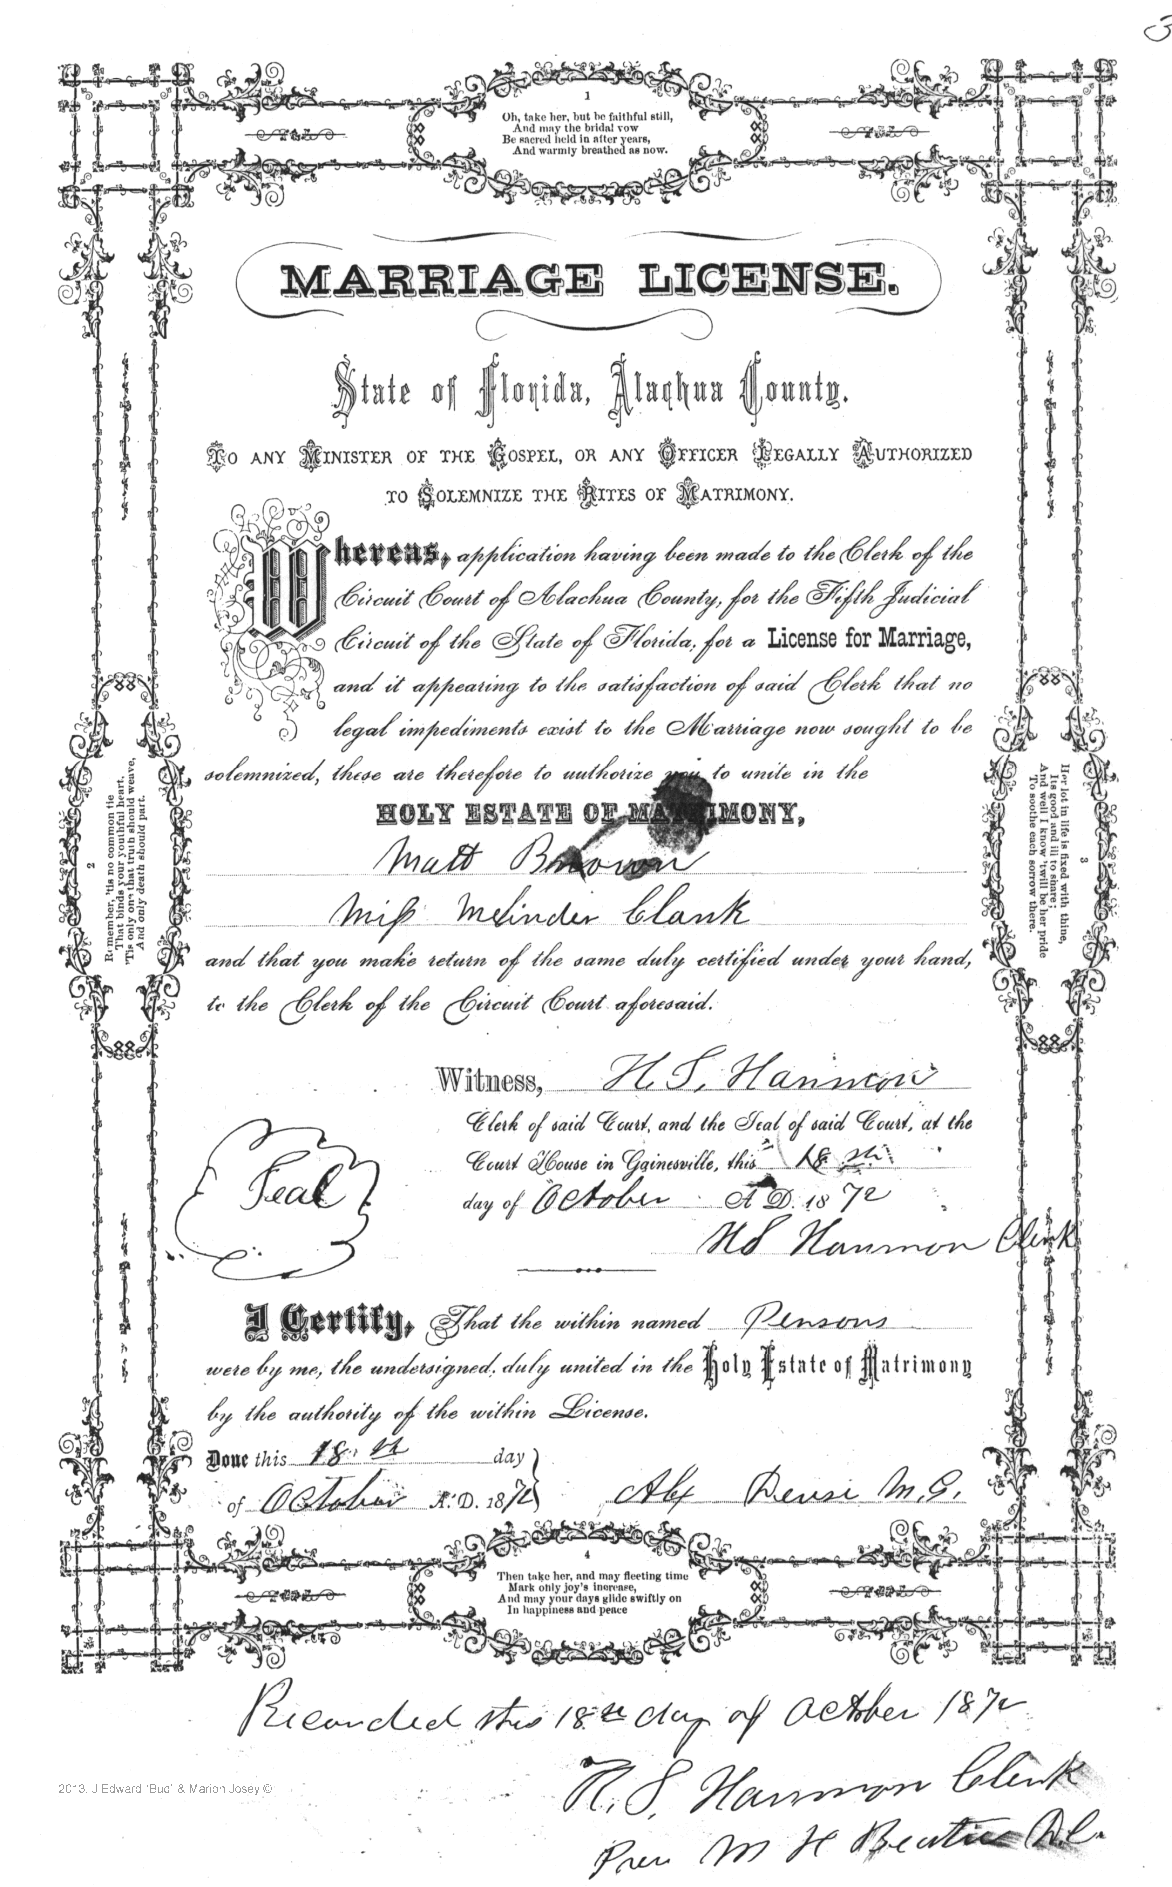 1
Oh, take her, but be faithful still,
And may the bridal vow
Be sacred held in after years,
And warmly breathed as now.
MARRIAGE LICENSE.
State of Florida, Alachua County.
TO ANY MINISTER OF THE GOSPEL, OR ANY OFFICER LEGALLY AUTHORIZED
TO SOLEMNIZE THE RITES OF MATRIMONY.
Whereas, application having been made to the Clerk of the
Circuit Court of Alachua County, for the Fifth Judicial
Circuit of the State of Florida, for a License for Marriage,
and it appearing to the satisfaction of said Clerk that no
legal impediments exist to the Marriage now sought to be
solemnized, these are therefore to authorize you to unite in the
HOLY ESTATE OF MATRIMONY,
Matt Brown
Miss Melinder Clark
and that you make return of the same duly certified under your hand,
to the Clerk of the Circuit Court aforesaid.
2
Remember, 'tis no common tie
That binds your youthful heart,
'Tis only one that truth should weave,
And only death should part.
3
Her lot in life is fixed with thine,
Its good and ill to share;
And well I know 'twill be her pride
To soothe each sorrow there.
Witness, H. S. Harmon
Clerk of said Court, and the Seal of said Court, at the
Court House in Gainesville, this 18th
day of October A.D. 1872
Seal
H S Harmon Clerk
I Certify, That the within named Persons
were by me, the undersigned, duly united in the Holy Estate of Matrimony
by the authority of the within License.
Done this 18th day
of October A.D. 1872
Alex M.G.
4
Then take her, and may fleeting time
Mark only joy's increase,
And may your days glide swiftly on
In happiness and peace
Recorded this 18th day of October 1872
H. S. Harmon Clerk
Per M H D.C.
2013. J Edward 'Bud' & Marion Josey ©